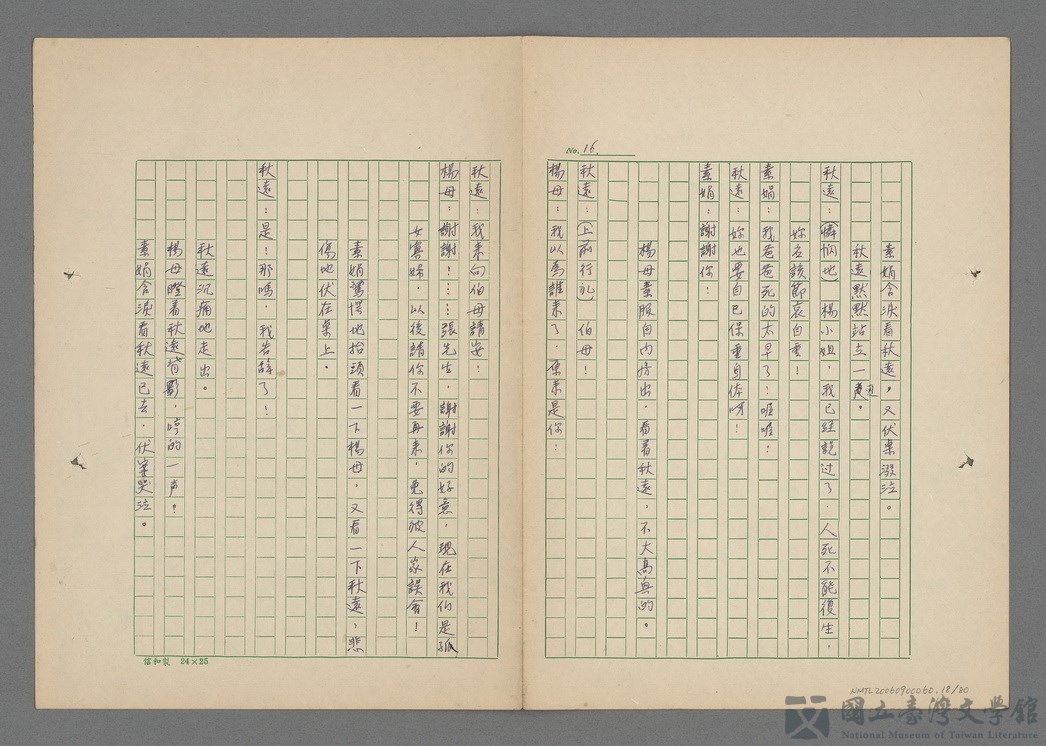 No. 16.
素娟含淚看秋遠，又伏桌啜泣。
秋遠默默站立一邊。
秋遠：(憐憫地)楊小姐，我已経說过了，人死不能復生，
妳应該節哀自重！
素娟：我爸爸死的太早了！喔喔！
秋遠：妳也要自己保重身体呀！
素娟：謝謝你！
楊母素服自內房出，看着秋遠，不大高興的。
秋遠：(上前行礼)伯母！
楊母：我以為誰來了，原來是你！
秋遠：我來向伯母請安！
楊母：謝謝！……張先生，謝謝你的好意，現在我们是孤
女寡婦，以後請你不要再來，免得被人家誤會！
素娟驚愕地抬頭看一下楊母，又看一下秋遠，悲
傷地伏在桌上。
秋遠：是！那嗎，我告辞了！
秋遠沉痛地走出。
楊母瞪着秋遠背影，哼的一声！
素娟含淚看秋遠已去，伏案哭泣。
信和製 24×25
NMTL20060900060.18/80
國立臺灣文學館
National Museum of Taiwan Literature